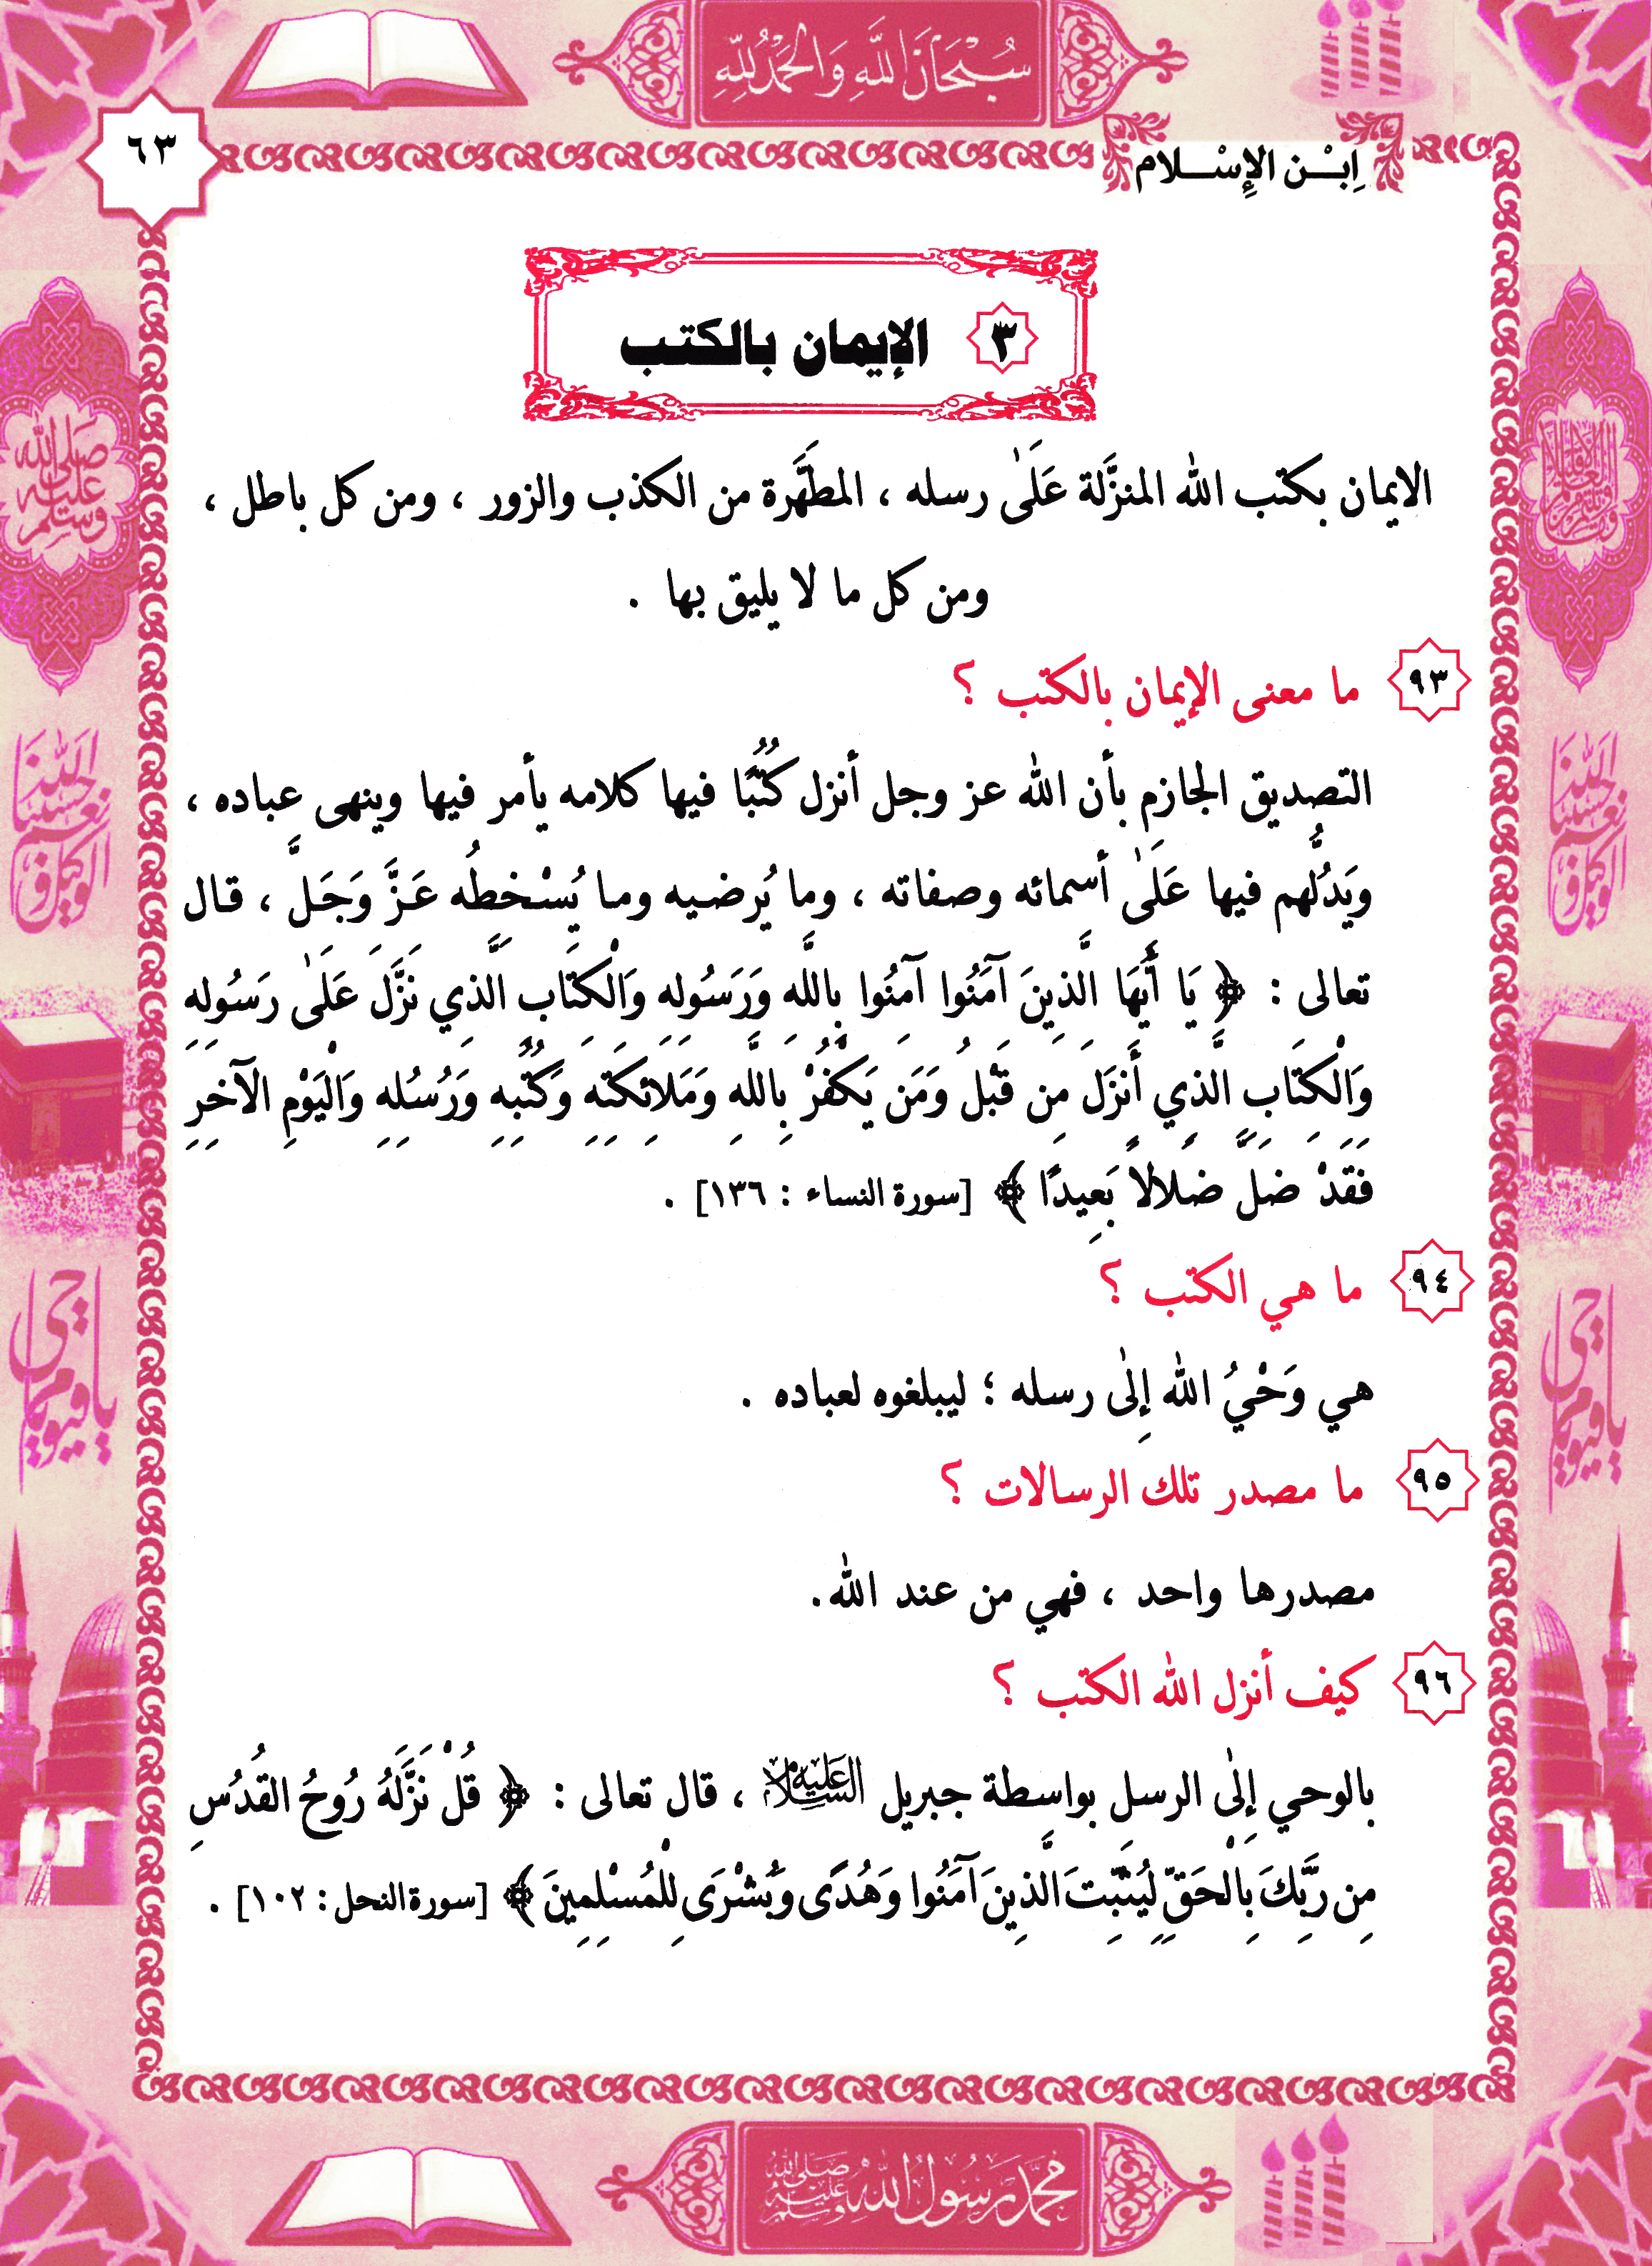 سُبْحَانَ اللَّهِ وَالْحَمْدُ لِلَّهِ
ابْن الإِسْلام
٦٣
٣ الإيمان بالكتب
الايمان بكتب الله المنزَّلة عَلَىٰ رسله ، المطهَّرة من الكذب والزور ، ومن كل باطل ،
ومن كل ما لا يليق بها .
٩٣ ما معنى الإيمان بالكتب ؟
التصديق الجازم بأن الله عز وجل أنزل كُتُبًا فيها كلامه يأمر فيها وينهى عباده ،
ويَدُلُّهم فيها عَلَىٰ أسمائه وصفاته ، وما يُرضيه وما يُسْخطُه عَزَّ وَجَلَّ ، قال
تعالى : ﴿ يَا أَيُّهَا الَّذِينَ آمَنُوا آمِنُوا بِاللَّهِ وَرَسُولِهِ وَالْكِتَابِ الَّذِي نَزَّلَ عَلَىٰ رَسُولِهِ
وَالْكِتَابِ الَّذِي أَنزَلَ مِن قَبْلُ وَمَن يَكْفُرْ بِاللَّهِ وَمَلائِكَتِهِ وَكُتُبِهِ وَرُسُلِهِ وَالْيَوْمِ الآخِرِ
فَقَدْ ضَلَّ ضَلالاً بَعِيدًا ﴾ [سورة النساء : ١٣٦] .
٩٤ ما هي الكتب ؟
هي وَحْيُ الله إِلىٰ رسله ؛ ليبلغوه لعباده .
٩٥ ما مصدر تلك الرسالات ؟
مصدرها واحد ، فهي من عند الله.
٩٦ كيف أنزل الله الكتب ؟
بالوحي إِلىٰ الرسل بواسطة جبريل عَلَيْهِ السَّلَام ، قال تعالى : ﴿ قُلْ نَزَّلَهُ رُوحُ الْقُدُسِ
مِن رَّبِّكَ بِالْحَقِّ لِيُثَبِّتَ الَّذِينَ آمَنُوا وَهُدًى وَبُشْرَى لِلْمُسْلِمِينَ ﴾ [سورة النحل : ١٠٢] .
صلى الله عليه وسلم
حسبنا الله ونعم الوكيل
حسبنا الله ونعم الوكيل
يا حي يا قيوم
يا حي يا قيوم
محمد رسول الله صلى الله عليه وسلم